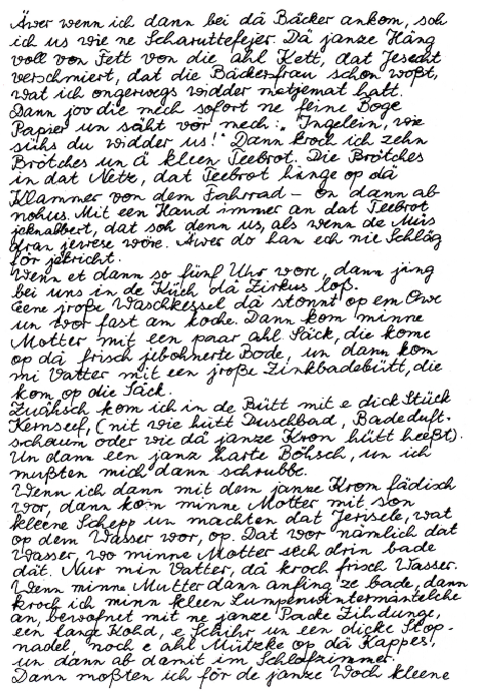 Äwer wenn ich dann bei dä Bäcker ankom, soh
ich us wie ne Scharuttefejer. Dä janze Häng
voll von Fett von die ahl Kett, dat Jesecht
verschmiert, dat die Bäckersfrau schon woßt,
wat ich ongerwegs widder metjemat hatt.
Dann jov die mech sofort ne feine Boge
Papier un säht vör mech: „Ingelein, wie
sühs du widder us!" Dann kroch ich zehn
Brötches un ä kleen Teebrot. Die Brötches
in dat Nette, dat Teebrot hänge op dä
Klammer von dem Fahrrad – on dann ab
nohus. Mit een Hand immer an dat Teebrot
jeknabbert, dat soh denn us, als wenn de Müs
dran jewese wöre. Äwer do han ech nie Schläg
för jekricht.
Wenn et dann so fünf Uhr wore, dann jing
bei uns in de Küch dä Zirkus loß.
Eene jroße Waschkessel dä stonnt op em Owe
un wor fast am koche. Dann kom minne
Motter mit een paar ahl Säck, die kome
op dä frisch jebohnerte Bode, un dann kom
mi Vatter mit een jroße Zinkbadebütt, die
kom op die Säck.
Zuähsch kom ich in de Bütt mit e dick Stück
Kernseif, (nit wie hütt Duschbad, Badeduft-
schaum oder wie dä janze Krom hütt heeßt).
Un dann een janz harte Böhsch, un ich
mußten mich dann schrubbe.
Wenn ich dann mit dem janze Krom fädisch
wor, dann kom minne Motter mit son
kleene Schepp un machten dat Jerisele, wat
op dem Wasser wor, op. Dat wor nämlich dat
Wasser, wo minne Motter sech drin bade
dät. Nur min Vatter, dä kroch frisch Wasser.
Wenn minne Mutter dann anfing ze bade, dann
kroch ich minn kleen Lumpenwintermäntelche
an, bewafnet mit ne janze Packe Zihdunge,
een lange Kohd, e Schihr un een dicke Stop-
nadel, noch e ahl Mützke op dä Kappes,
un dann ab damit im Schlofzimmer.
Dann moßten ich för de janze Woch kleene